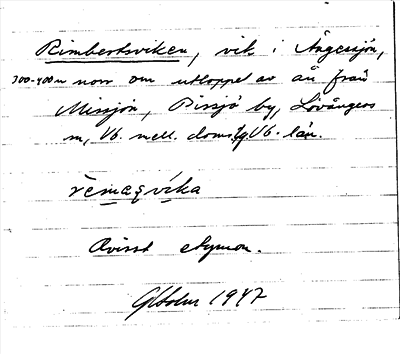 Rimbertsviken, vik i Ångessjön,
300-400 m norr om utloppet av ån från
Missjön, Pissjö by, Lövångers
sn, Vb. mell. doms. Vb. län.
Ovisst etymon.
1947